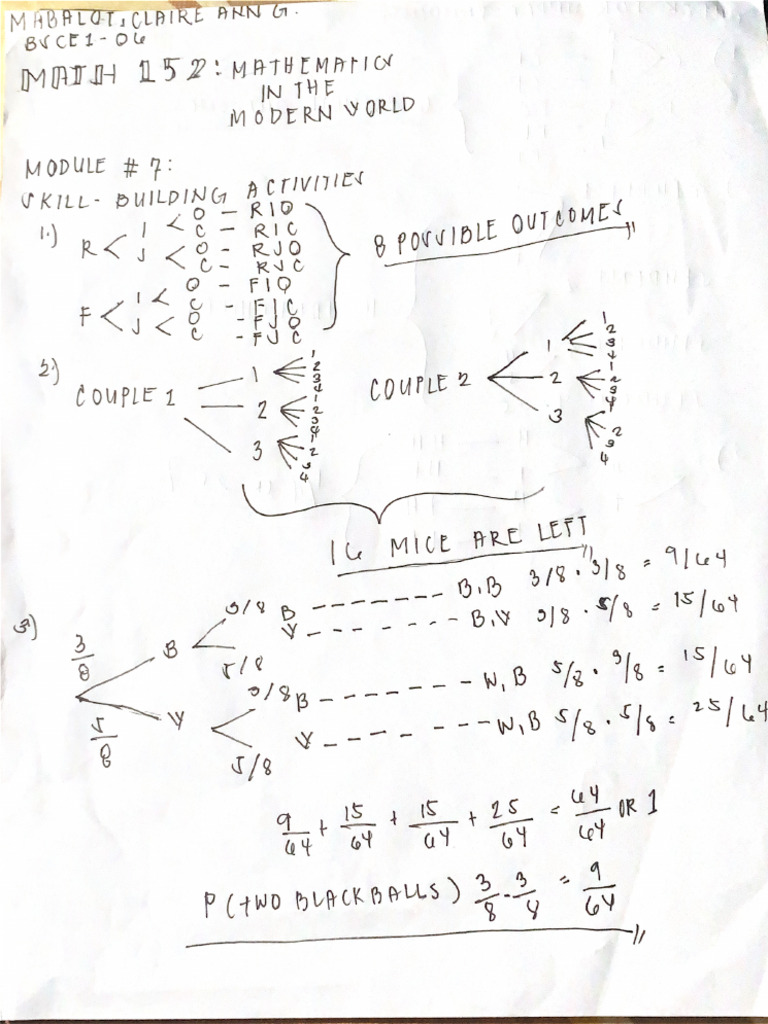 MABALOT, CLAIRE ANN G.
BSCE1-06
MATH 152: MATHEMATICS
IN THE
MODERN WORLD
MODULE # 7:
SKILL-BUILDING ACTIVITIES
1.) R < I < O - RIO
C - RIC
J < O - RJO
C - RJC
F < I < O - FIO
C - FIC
J < O - FJO
C - FJC
8 POSSIBLE OUTCOMES
2.) COUPLE 1
1 1 2 3 4
2 1 2 3 4
3 1 2 3 4
COUPLE 2
1 1 2 3 4
2 1 2 3 4
3 2 3 4
16 MICE ARE LEFT
3.) 3/8 B 3/8 B ------- B,B 3/8 · 3/8 = 9/64
5/8 W ------- B,W 3/8 · 5/8 = 15/64
5/8 W 3/8 B ------- W,B 5/8 · 3/8 = 15/64
5/8 W ------- W,B 5/8 · 5/8 = 25/64
9/64 + 15/64 + 15/64 + 25/64 = 64/64 OR 1
P (TWO BLACK BALLS) 3/8 · 3/8 = 9/64